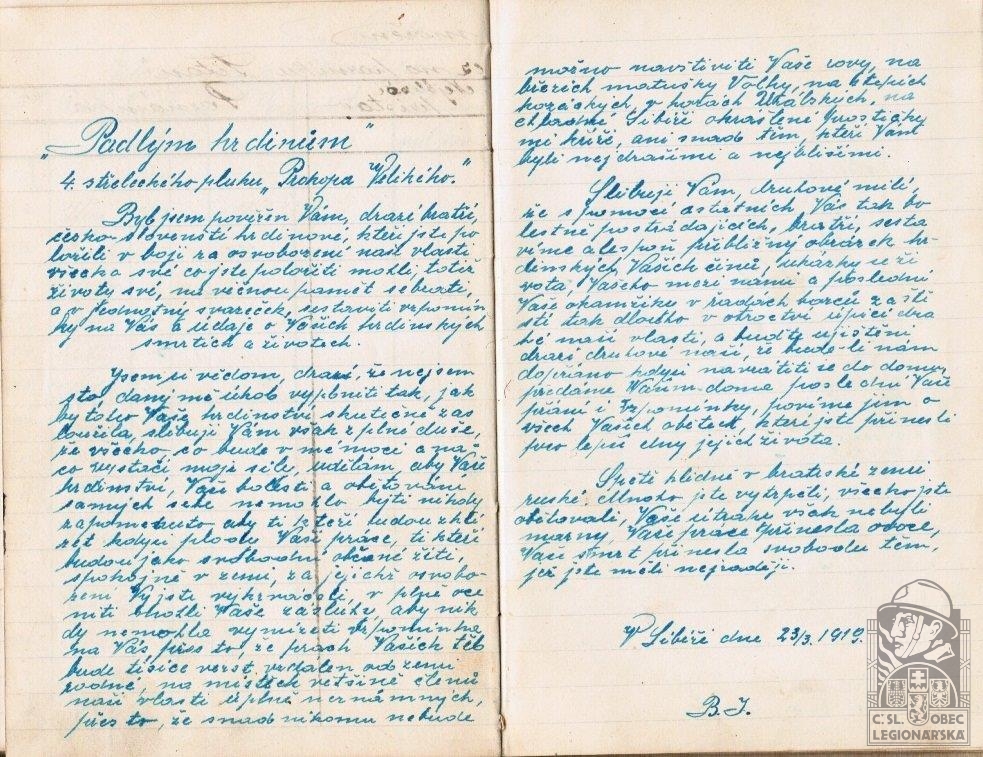 „Padlým hrdinům"
4. střeleckého pluku „Prokopa Velikého."
Byl jsem pověřen Vám, drazí bratří,
česko-slovenští hrdinové, kteří jste po
ložili v boji za osvobození naší vlasti
všecko své co jste položiti mohli, totiž
životy své, na věčnou paměť sebrati,
a v jednotný svazeček, sestaviti vzpomín
ky na Vás a údaje o Vašich hrdinských
smrtích a životech.
Jsem si vědom, drazí, že nejsem
s to, daný mě úkol vyplniti tak, jak
by toho Vaše hrdinství skutečně zas
loužila, slibuji Vám však z plné duše,
že všecko, co bude v mé moci a na
co vystačí moje síle, udělám, aby Vaše
hrdinství, Vaše bolesti a obětování
samých sebe nemohlo býti nikdy
zapomenuto aby ti kteří budou skli
zet kdysi plody Vaší práce, ti kteří
budou jako svobodní občané žíti,
spokojně v zemi, za jejichž osvobo-
zení Vy jste vykrváceli, v plné oce
niti mohli Vaše zásluhy, aby nik
dy nemohla vymizeti vzpomínka
na Vás přes to, že prach Vašich těl
bude tisíce verst vzdálen od zemi
rodné, na místech většině členů
naší vlasti úplně neznámých,
přes to, že snad nikomu nebude
možno navštíviti Vaše rovy, na
březích matušky Volhy, na stepích
kozáckých, v horách Urálských, na
chladné Sibiři okrášlené prostičký
mi kříži, ani snad těm, kteří Vám
byli nejdražšími a nejbližšími.
Slibuji Vám, druhové milí,
že s pomocí ostatních Vás tak bo
lestně postrádajících, bratří, sesta
víme alespoň přibližný obrázek hr
dinských Vašich činů, ukázky ze ži
vota Vašeho mezi námi a poslední
Vaše okamžiky v řadách borců za ště
stí tak dlouho v otroctví úpící dra
hé naší vlasti, a buďte ujištěni
drazí druhové naši, že bude-li nám
dopřáno kdysi navrátiti se do domov,
předáme Vašim doma poslední Vaše
přání i vzpomínky, povíme jim o
všech Vašich obětech, které jste přinesli
pro lepší dny jejich života.
Spěti klidně v bratrské zemi
ruské. Mnoho jste vytrpěli, všecko jste
obětovali, Vaše útrapy však nebyly
marny, Vaše práce přinesla ovoce,
Vaše smrt přinesla svobodu těm,
jež jste měli nejraději.
V Sibiři dne 23/3. 1919.
B. J.
Č.SL. OBEC
LEGIONÁŘSKÁ